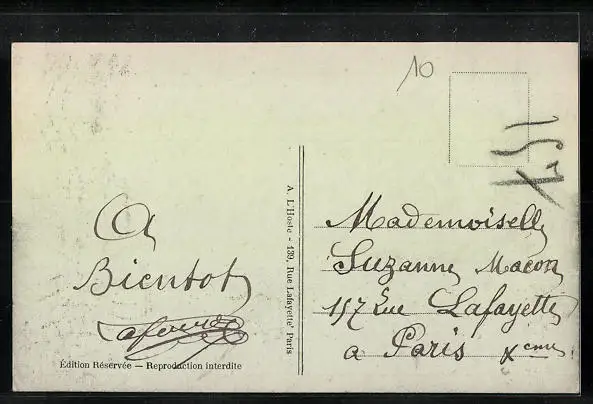 10
A
Bientot
Édition Réservée — Reproduction interdite
A. L'Hoste - 139, Rue Lafayette' Paris
Mademoiselle
Suzanne Macon
157 Rue Lafayette
a Paris Xeme